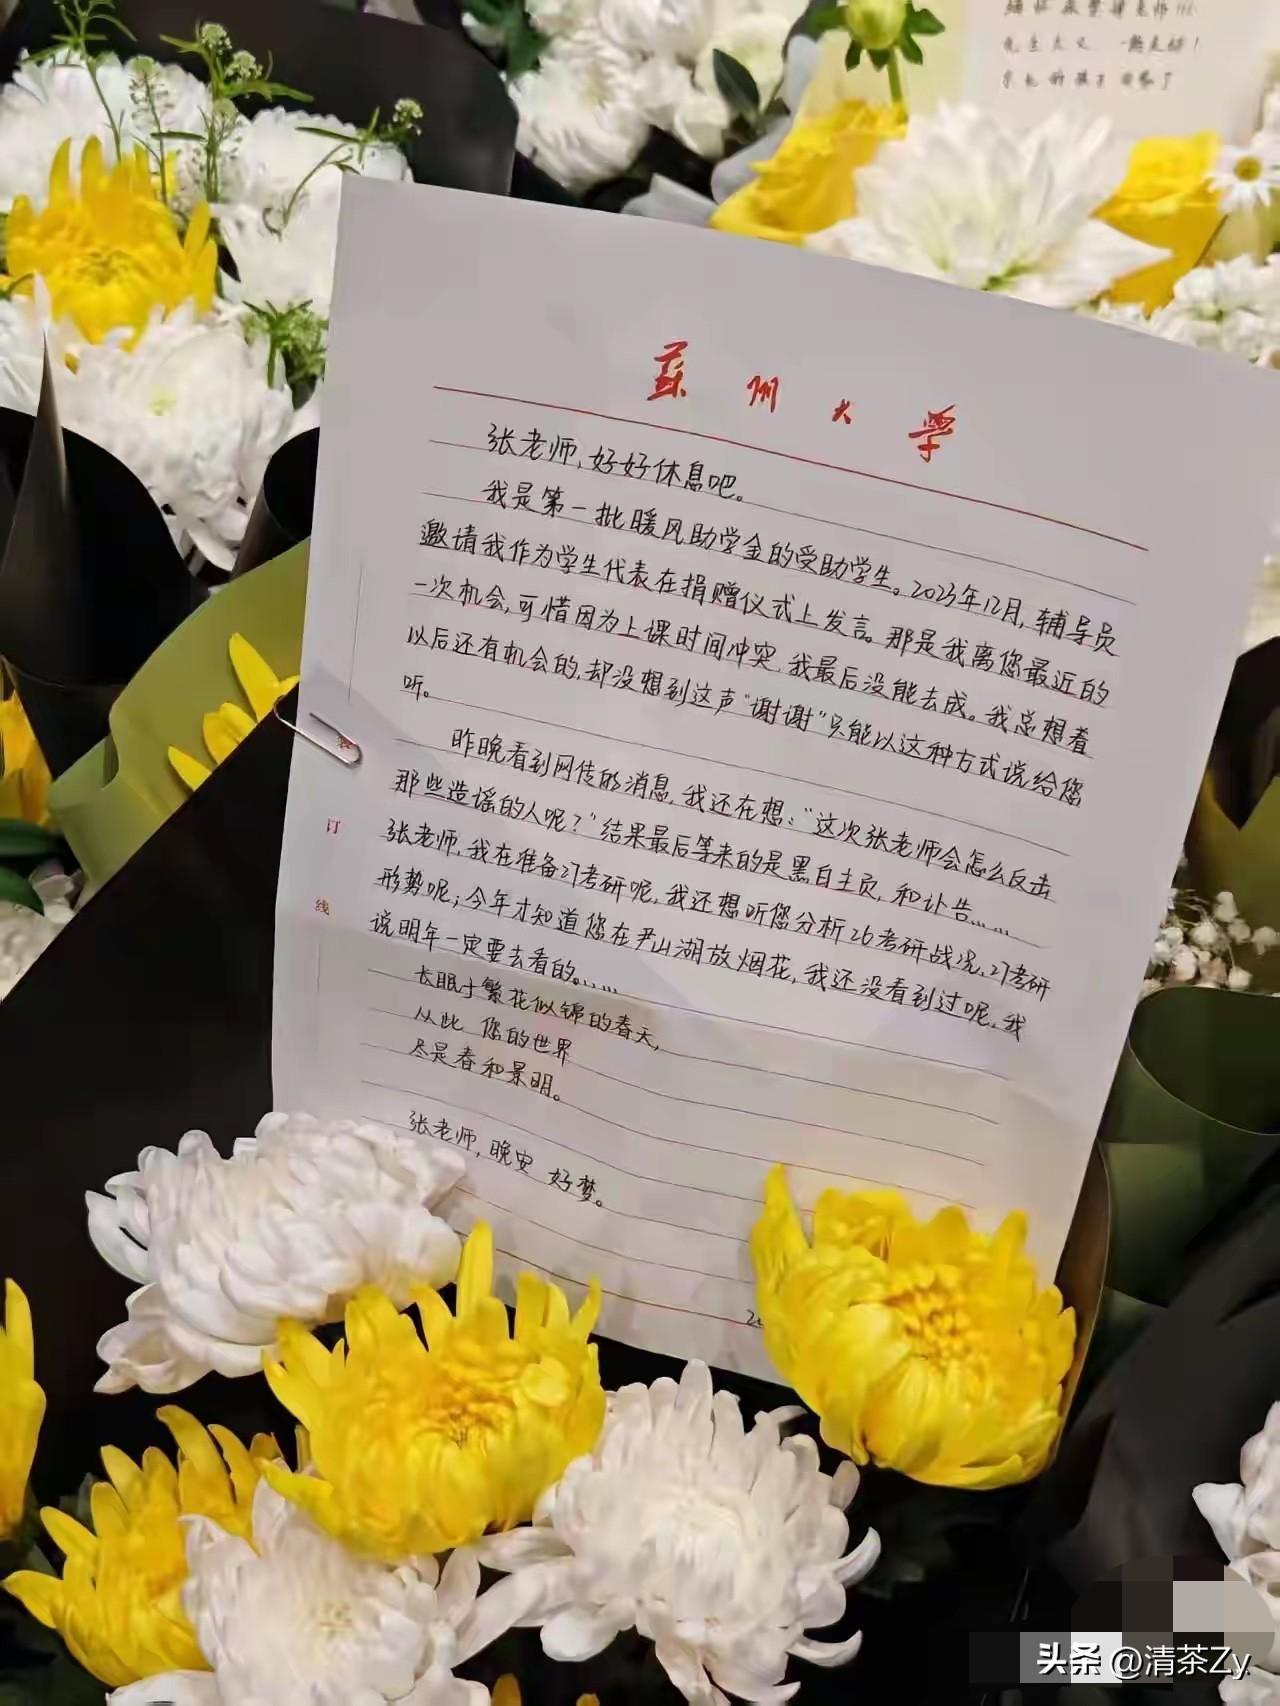 缅怀张雪峰老师!!!
先生大义 一路走好!
蘇州大學
张老师,好好休息吧。
我是第一批暖风助学金的受助学生。2023年12月,辅导员
邀请我作为学生代表在捐赠仪式上发言。那是我离您最近的
一次机会,可惜因为上课时间冲突,我最后没能去成。我总想着
以后还有机会的,却没想到这声“谢谢”只能以这种方式说给您
听。
昨晚看到网传的消息,我还在想:“这次张老师会怎么反击
那些造谣的人呢?”结果最后等来的是黑白主页,和讣告……
张老师,我在准备27考研呢,我还想听您分析26考研战况、27考研
形势呢;今年才知道您在尹山湖放烟花,我还没看到过呢,我
说明年一定要去看的……
长眠于繁花似锦的春天,
从此 您的世界
尽是春和景明。
张老师,晚安 好梦。
20
装
订
线
头条 @清茶Zy